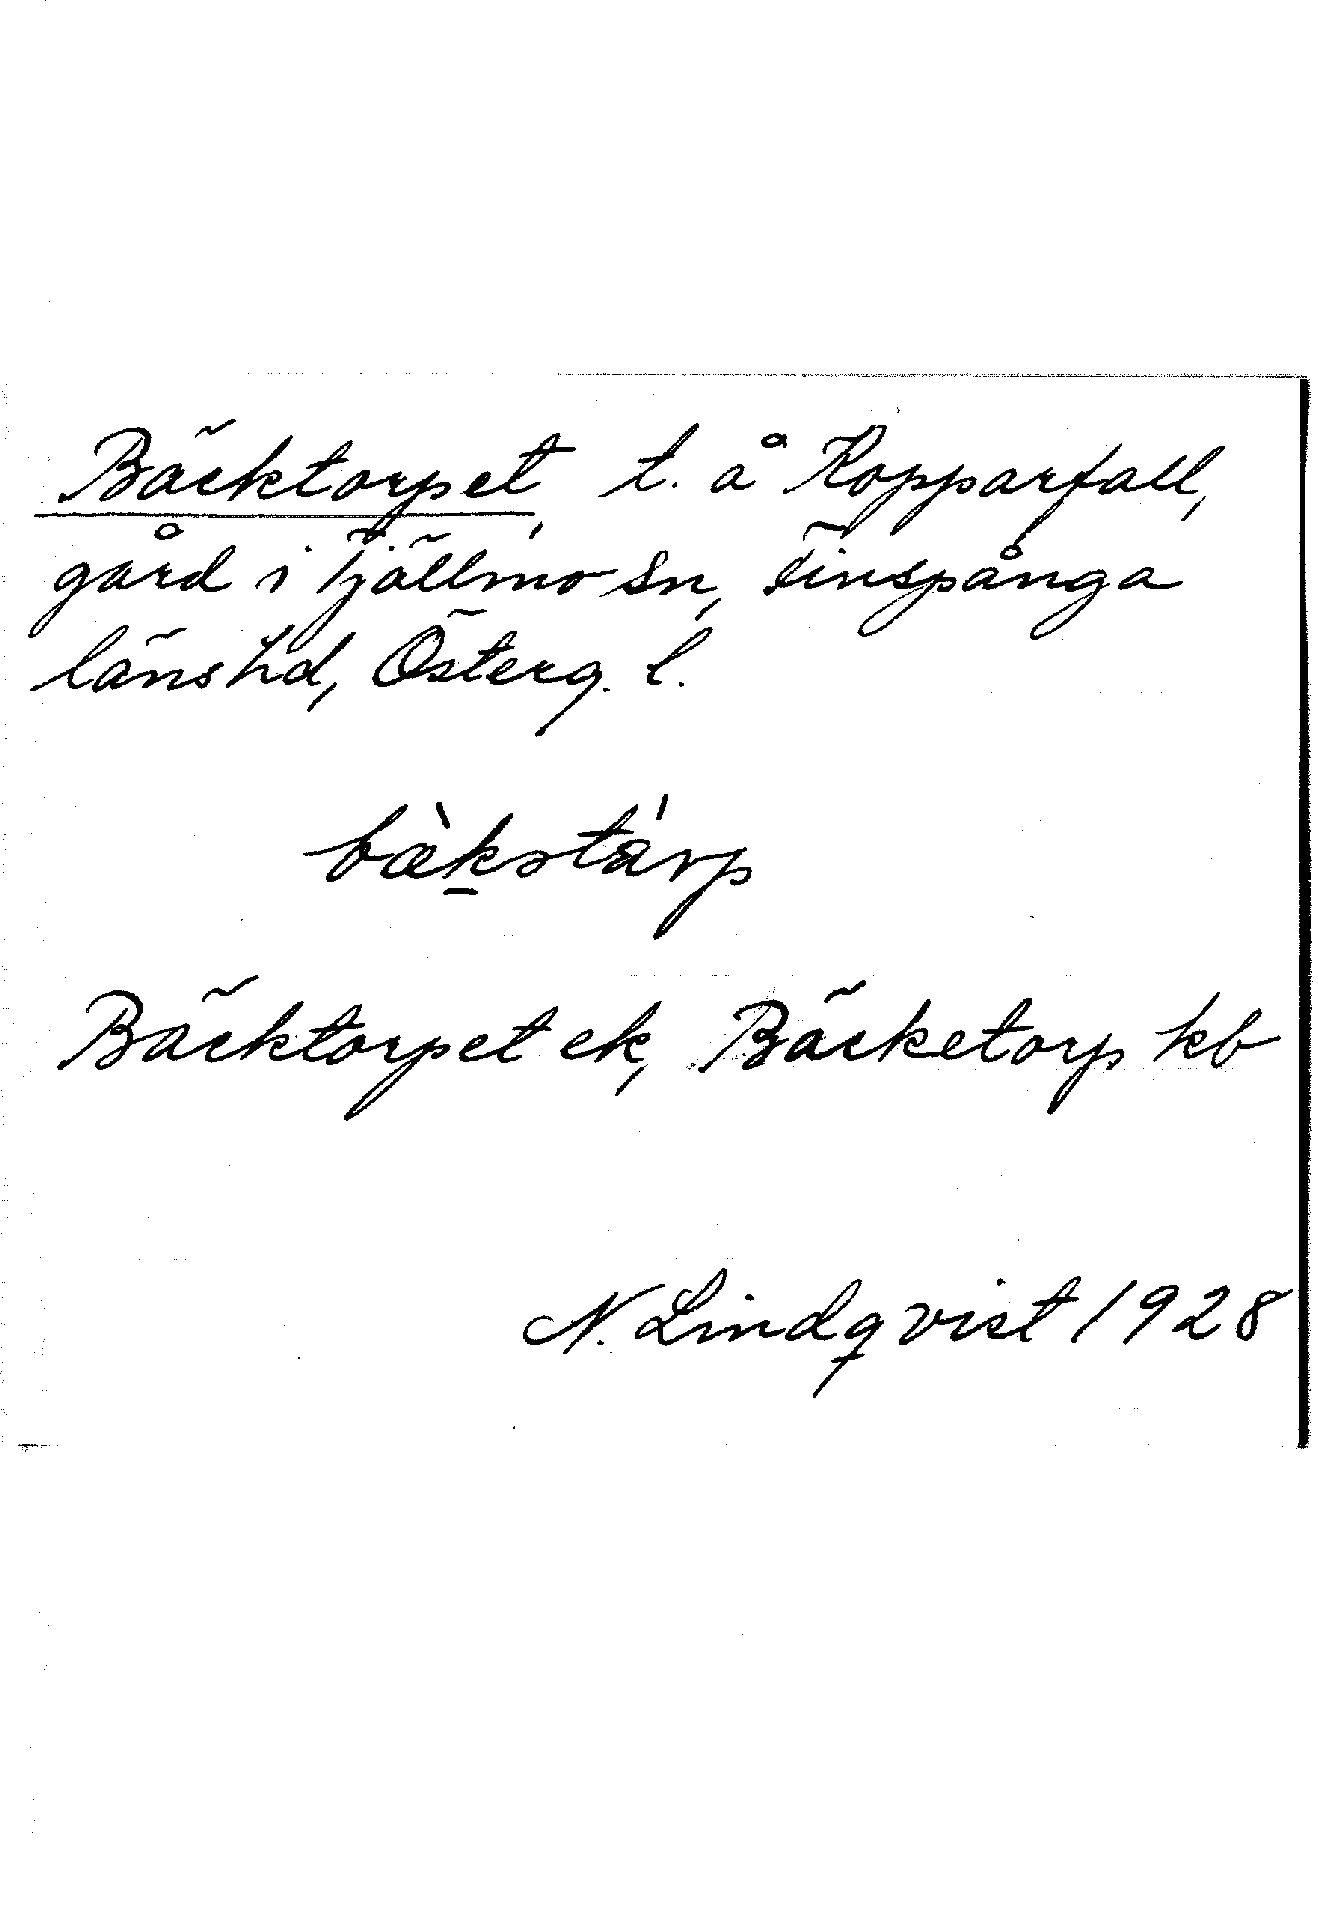 Bäcktorpet, t. å Kopparfall,
gård i Tjällmo sn, Finspånga
läns hd, Österg. l.
bæ̀kətárp
Bäcktorpet ek, Bäcketorp kb
N. Lindqvist 1928